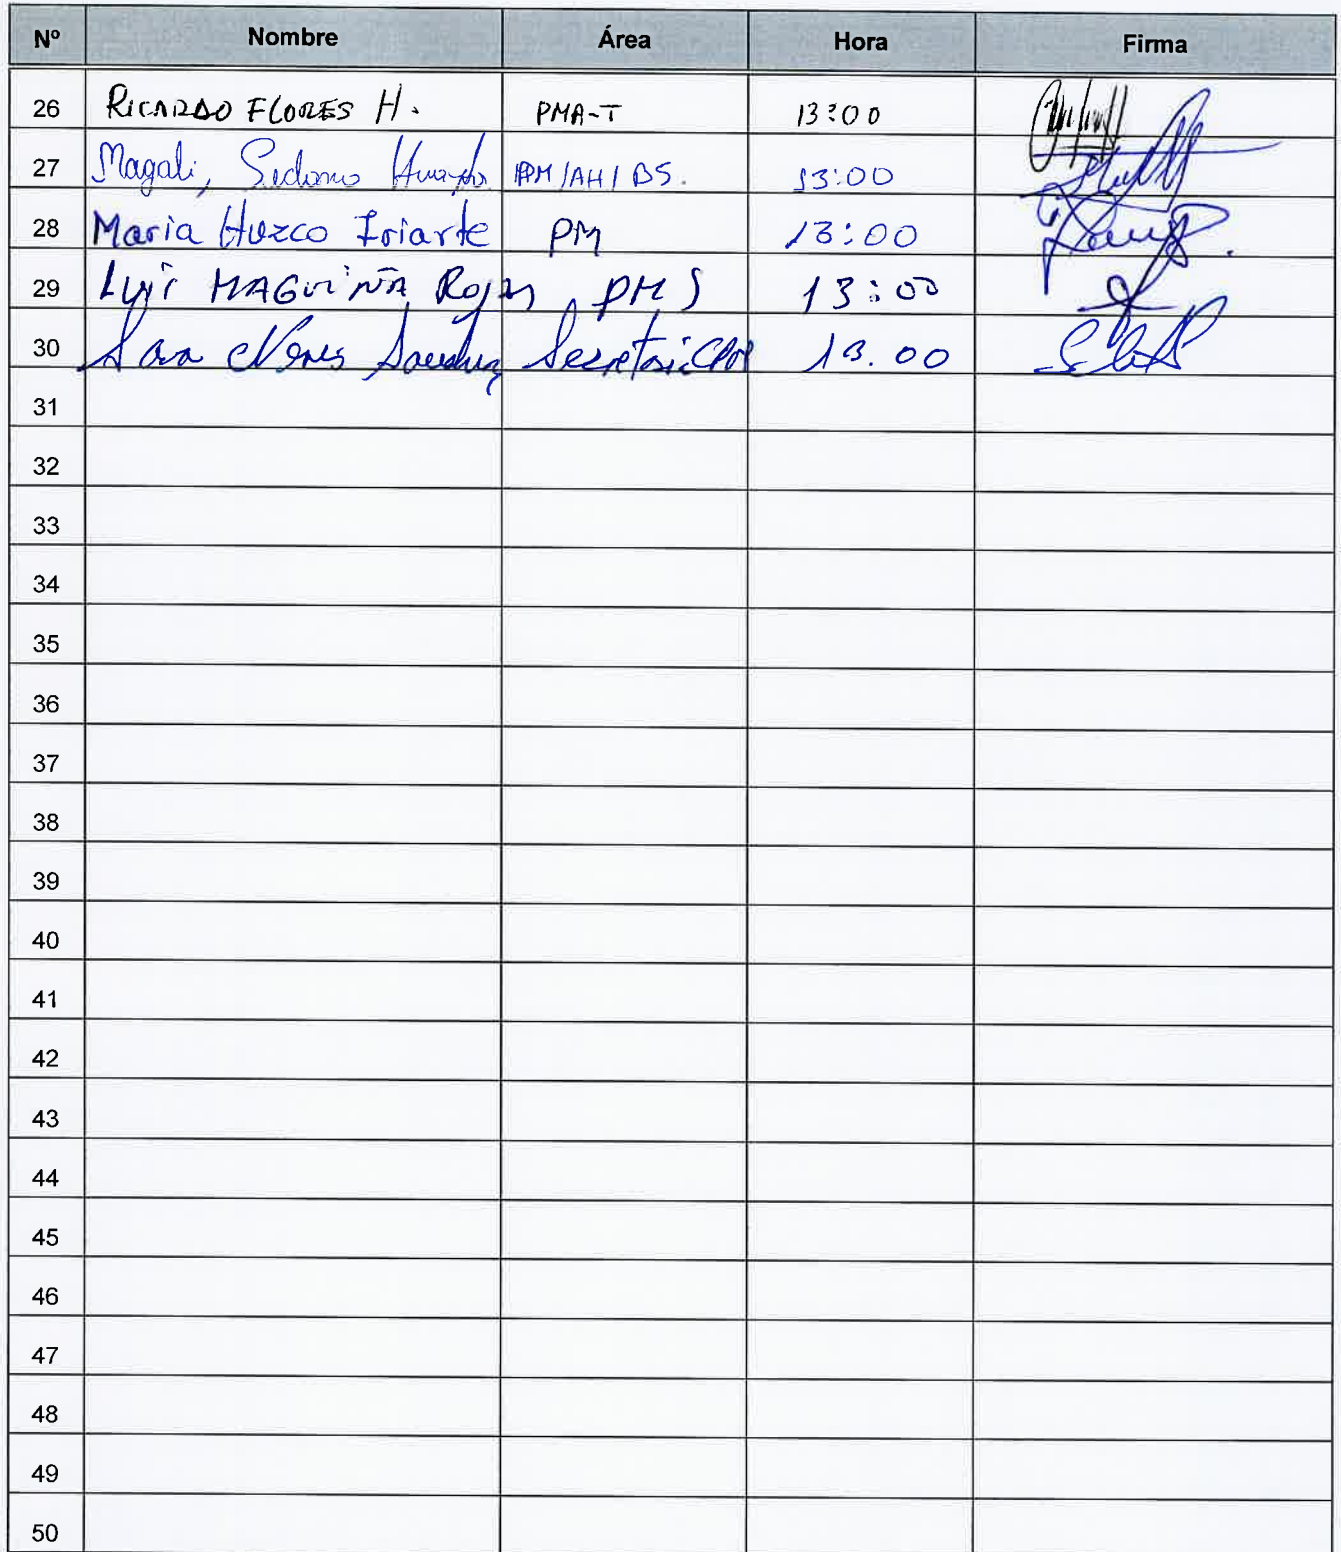 Nº Nombre Área Hora Firma
26 RICARDO FLORES H. PMA-T 13:00
27 Magali, PM/AH/DS. 13:00
28 Maria Huzco Iriarte PM 13:00
29 Luis MAGUIÑA Rojas PMS 13:00
30 Sara 13.00
31
32
33
34
35
36
37
38
39
40
41
42
43
44
45
46
47
48
49
50